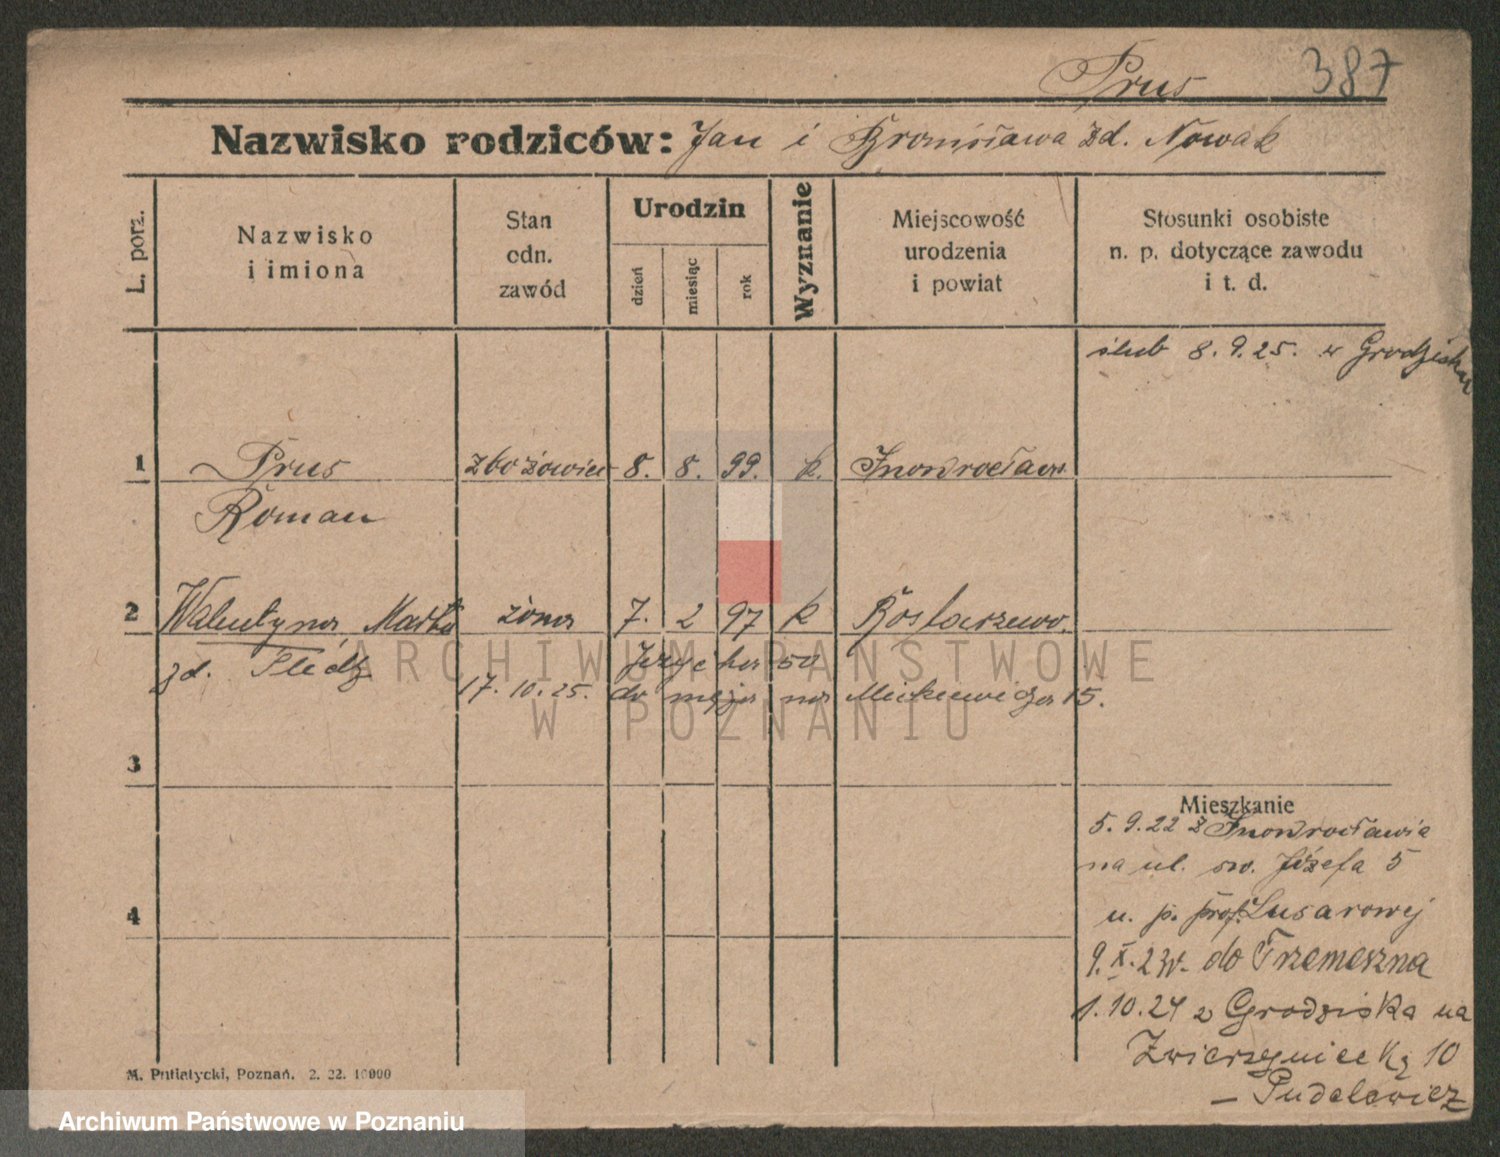 Prus 387
Nazwisko rodziców: Jan i Bronisława zd. Nowak
L. porz.
Nazwisko
i imiona
Stan
odn.
zawód
Urodzin
dzień
miesiąc
rok
Wyznanie
Miejscowość
urodzenia
i powiat
Stosunki osobiste
n. p. dotyczące zawodu
i t. d.
ślub 8. 9. 25. w Grodzisku
1 Prus zbożowiec 8. 8. 99. k. Inowrocław
Roman
2 Walentyna Marta żona 7. 2 97 k Rostarzewo.
zd. 50
17. 10. 25. do męża na Mickiewicza 15.
ARCHIWUM PAŃSTWOWE
W POZNANIU
3
Mieszkanie
5. 9. 22 z Inowrocławia
na ul. św. Józefa 5
u. p. prof. Lusarowej
4
9. X. 23 r. do Trzemeszna
1. 10. 24 z Grodziska na
Zwierzyniecką 10
– Pudelewicz
M. Putiatycki, Poznań. 2. 22. 10000
Archiwum Państwowe w Poznaniu